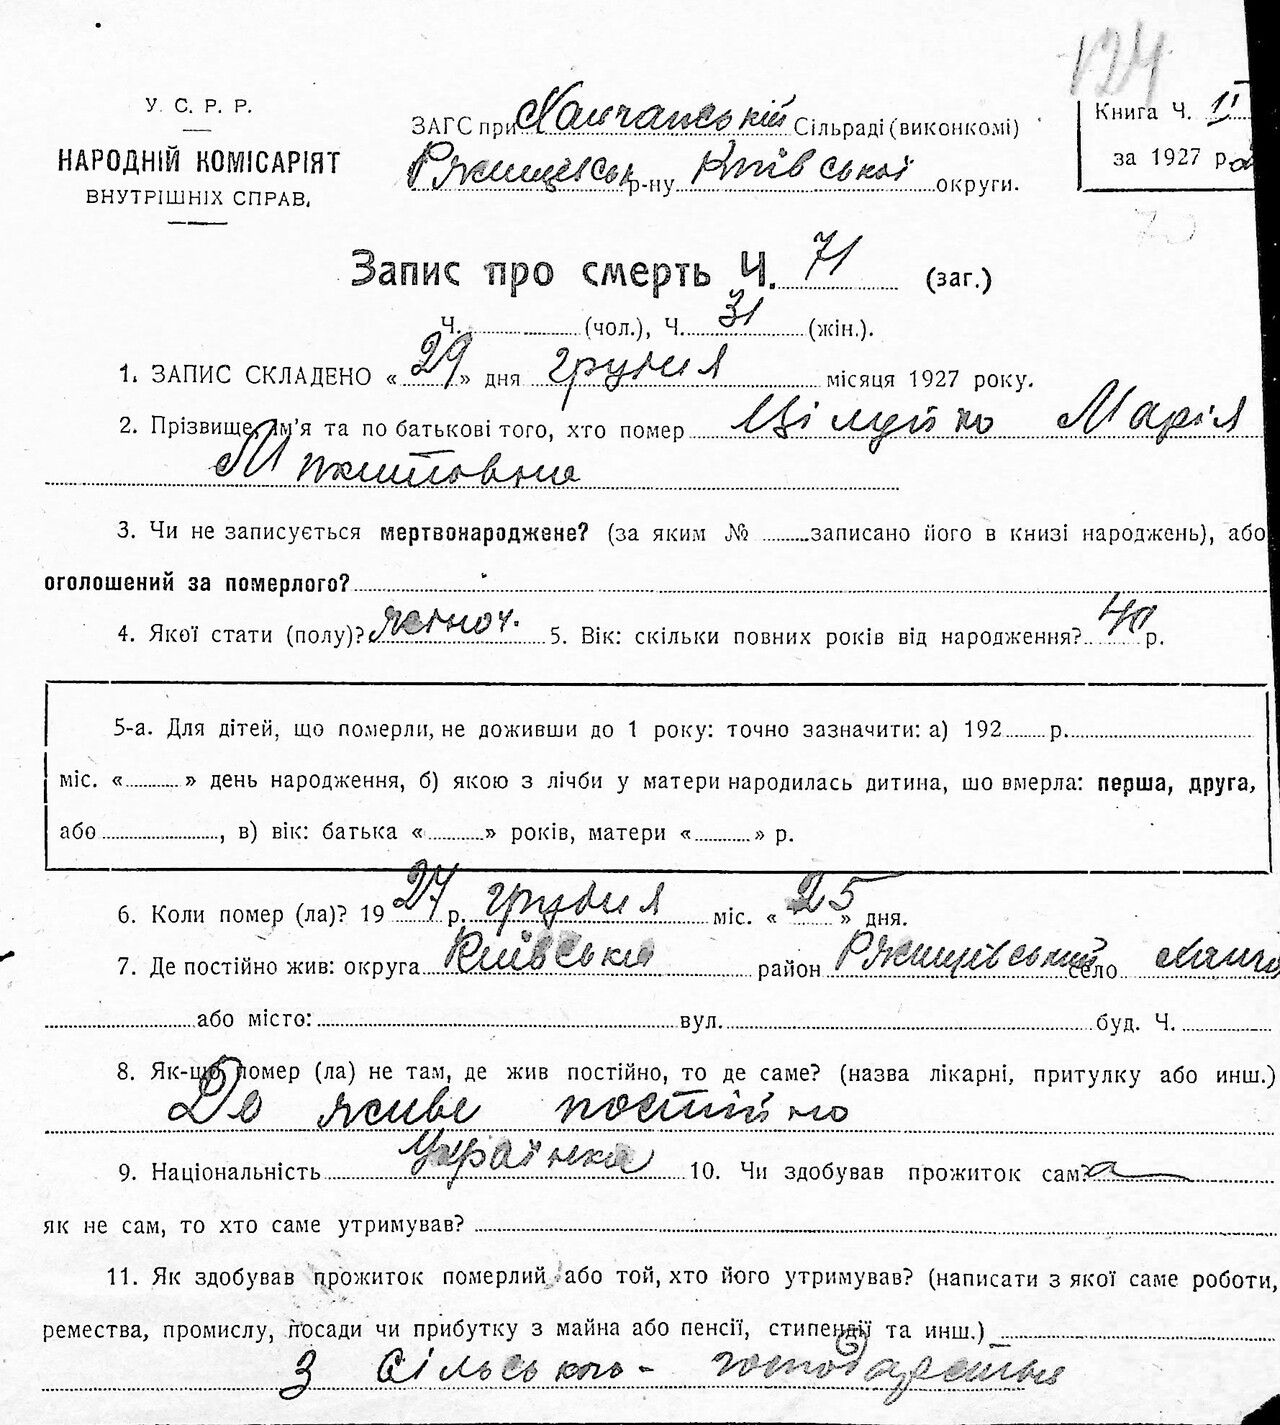 124
У. С. Р. Р.
НАРОДНІЙ КОМІСАРІЯТ
ВНУТРІШНІХ СПРАВ.
ЗАГС при Ханчанській Сільраді (виконкомі)
Ржищівськ р-ну Київської округи.
Книга Ч. II
за 1927 р.
70
Запис про смерть Ч. 71 (заг.)
Ч. (чол.), Ч. 31 (жін.).
1. ЗАПИС СКЛАДЕНО «29» дня грудня місяця 1927 року.
2. Прізвище, ім'я та по батькові того, хто помер Цілуйко Марія
Микитовна
3. Чи не записується мертвонароджене? (за яким № записано його в книзі народжень), або
оголошений за померлого?
4. Якої стати (полу)? жіноч. 5. Вік: скільки повних років від народження? 40 р.
5-а. Для дітей, що померли, не доживши до 1 року: точно зазначити: а) 192 р.
міс. « » день народження, б) якою з лічби у матери народилась дитина, що вмерла: перша, друга,
або , в) вік: батька « » років, матери « » р.
6. Коли помер (ла)? 19 27 р. грудня міс. «25» дня.
7. Де постійно жив: округа Київська район Ржищівський село
або місто: вул. буд. Ч.
8. Як-що помер (ла) не там, де жив постійно, то де саме? (назва лікарні, притулку або инш.)
Де живе постійно
9. Національність Українка 10. Чи здобував прожиток сам? а
як не сам, то хто саме утримував?
11. Як здобував прожиток померлий або той, хто його утримував? (написати з якої саме роботи,
ремества, промислу, посади чи прибутку з майна або пенсії, стипендії та инш.)
З сільського-господарства